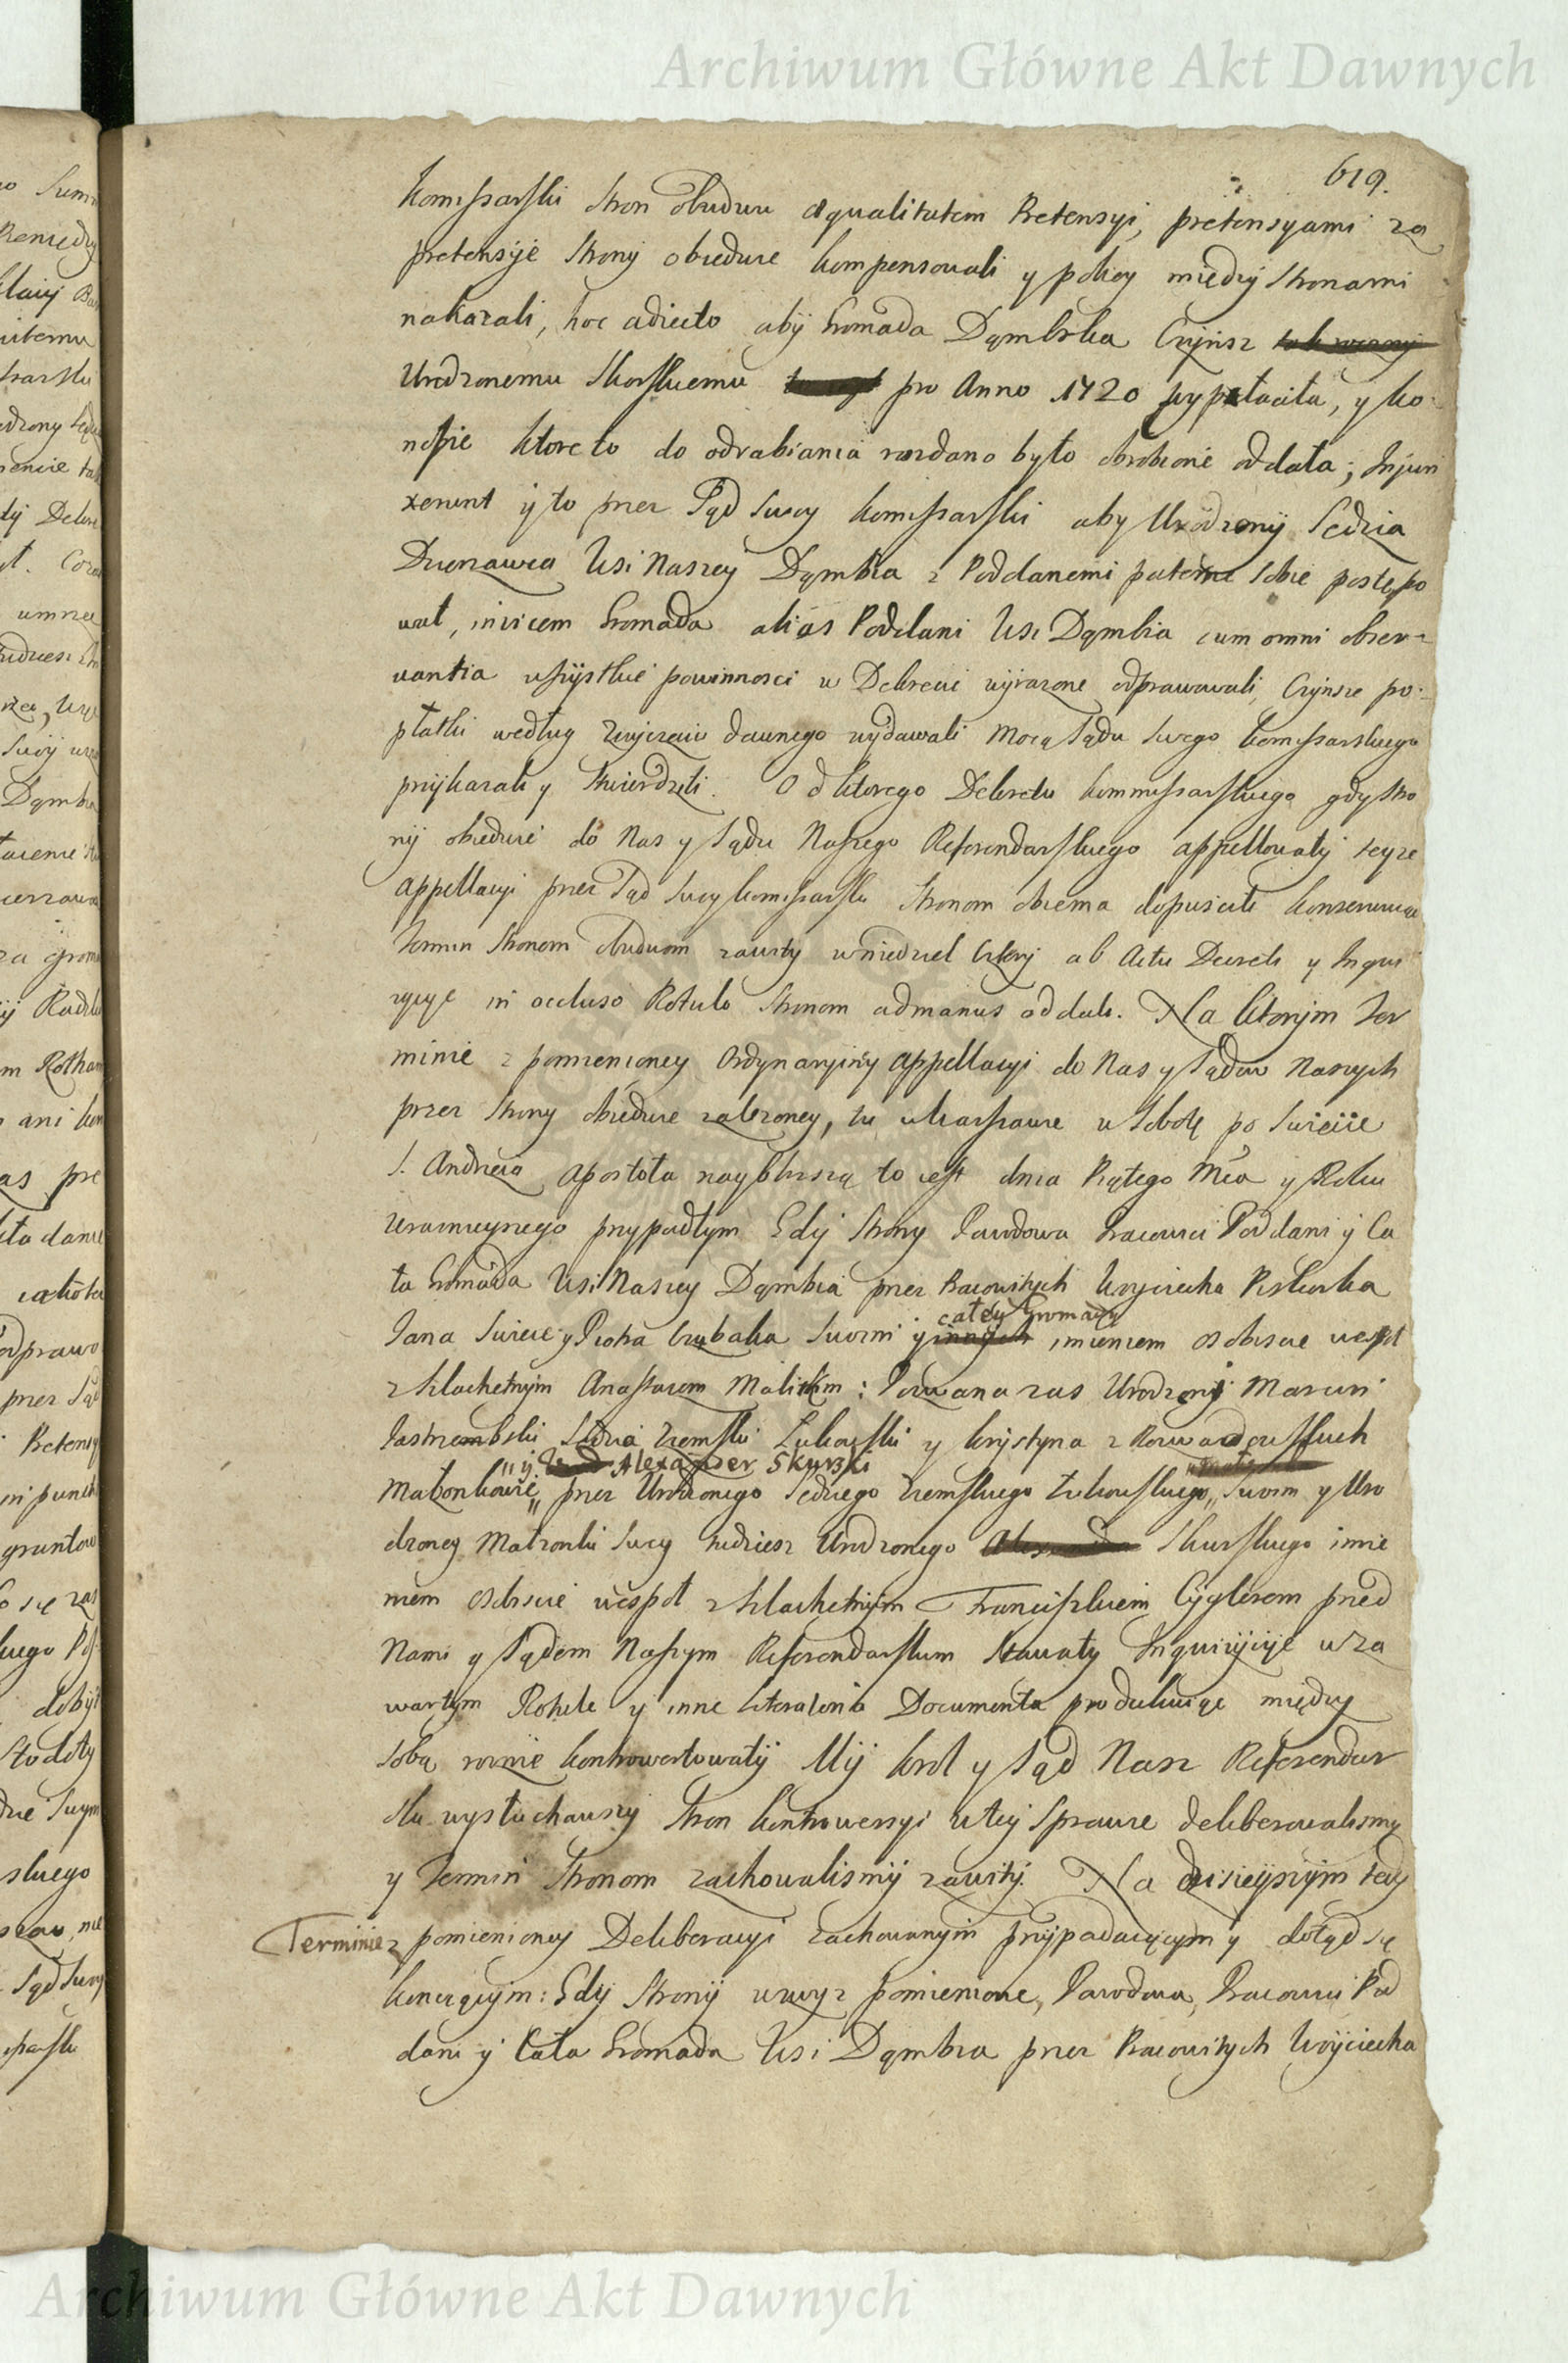 Archiwum Główne Akt Dawnych
619.
Komissarski Stron obudwu aequalitatem Pretensyi, pretensyami za
pretensyie Strony obiedwie kompensowali y pokoy między Stronami
nakazali, hoc adiecto aby Gromada Dąmbska Czynsz
Urodzonemu Skorskiemu pro Anno 1720 wypłaciła, y ko-
nopie ktore to do odrabiania rozdano było obrobione oddała; Injun
xerunt y to przez Sąd Swoy Komissarski aby Urodzony Sędzia
Dzierzawca Wsi Naszey Dąmbia z Poddanemi sobie postępo
wał, invicem Gromada alias Poddani Wsi Dąmbia cum omni obser-
vantia wszystkie powinnosci w Dekrecie wyrazone odprawowali, Czynsze po-
płatki według zwyczaiu dawnego wydawali Mocą Sądu Swego Komissarskiego
przykazali y stwierdzili. Od ktorego Dekretu Kommissarskiego gdy Stro
ny obiedwie do Nas y Sądu Naszego Referendarskiego appellowały teyze
appellacyi przez Sąd Swoy Komissarski Stronom obiema dopuscili konserwuiąc
Termin Stronom obudwom zawity w niedziel cztery ab Actu Decreti y Inqui
zycye in occluso Rotulo Stronom ad manus oddali. Na ktorym Ter
minie z pomienioney Ordynaryiney appellacyi do Nas y Sądow Naszych
przez Strony obiedwie zalozoney, tu w Warszawie w Sobotę po Swięcie
S. Andrzeia Apostoła naybliszą to iest dnia Piątego Mca y Roku
terazniejszego przypadłym Gdy Strony Powodowa Pracowici Poddani y Ca
ła Gromada Wsi Naszey Dąmbia przez Pracowitych Woyciecha Piskorka
całey Gromady
Jana Swiecę y Piotra Czubaka Swoim y imieniem osobiscie wespoł
z Szlachetnym Anastazem Malickim: Pozwana zas Urodzony Marcin
Jastrzembski Sędzia Ziemski Łukowski y Krystyna z Małzonkowie
„y Alexander Skurski
Małzonkowie„ przez Urodzonego Sędziego Ziemskiego Łukowskiego„ Swoim y Uro
dzoney Małzonki Swey tudziesz Urodzonego Skurskiego imie
niem osobiscie wespoł z Szlachetnym Franciszkiem Cyglerem przed
Nami y Sądem Naszym Referendarskim stawały Inquizycye w za
wartym Rotule y inne literatoria Documenta produkuiąc między
sobą roznie kontrowertowały My Krol y Sąd Nasz Referendar
ski wysłuchawszy Stron kontrowersyi w tey Sprawie deliberowalismy
y Termin Stronom zachowalismy zawity. Na dzisieyszym tedy
Terminie z pomienioney Deliberacyi zachowanym przypadaiącym y dotąd się
koncącym: Gdy Strony wwyz pomienione, Powodowa, Pracowici Pod
dani y Cała Gromada Wsi Dąmbia przez Pracowitych Woyciecha
Archiwum Główne Akt Dawnych